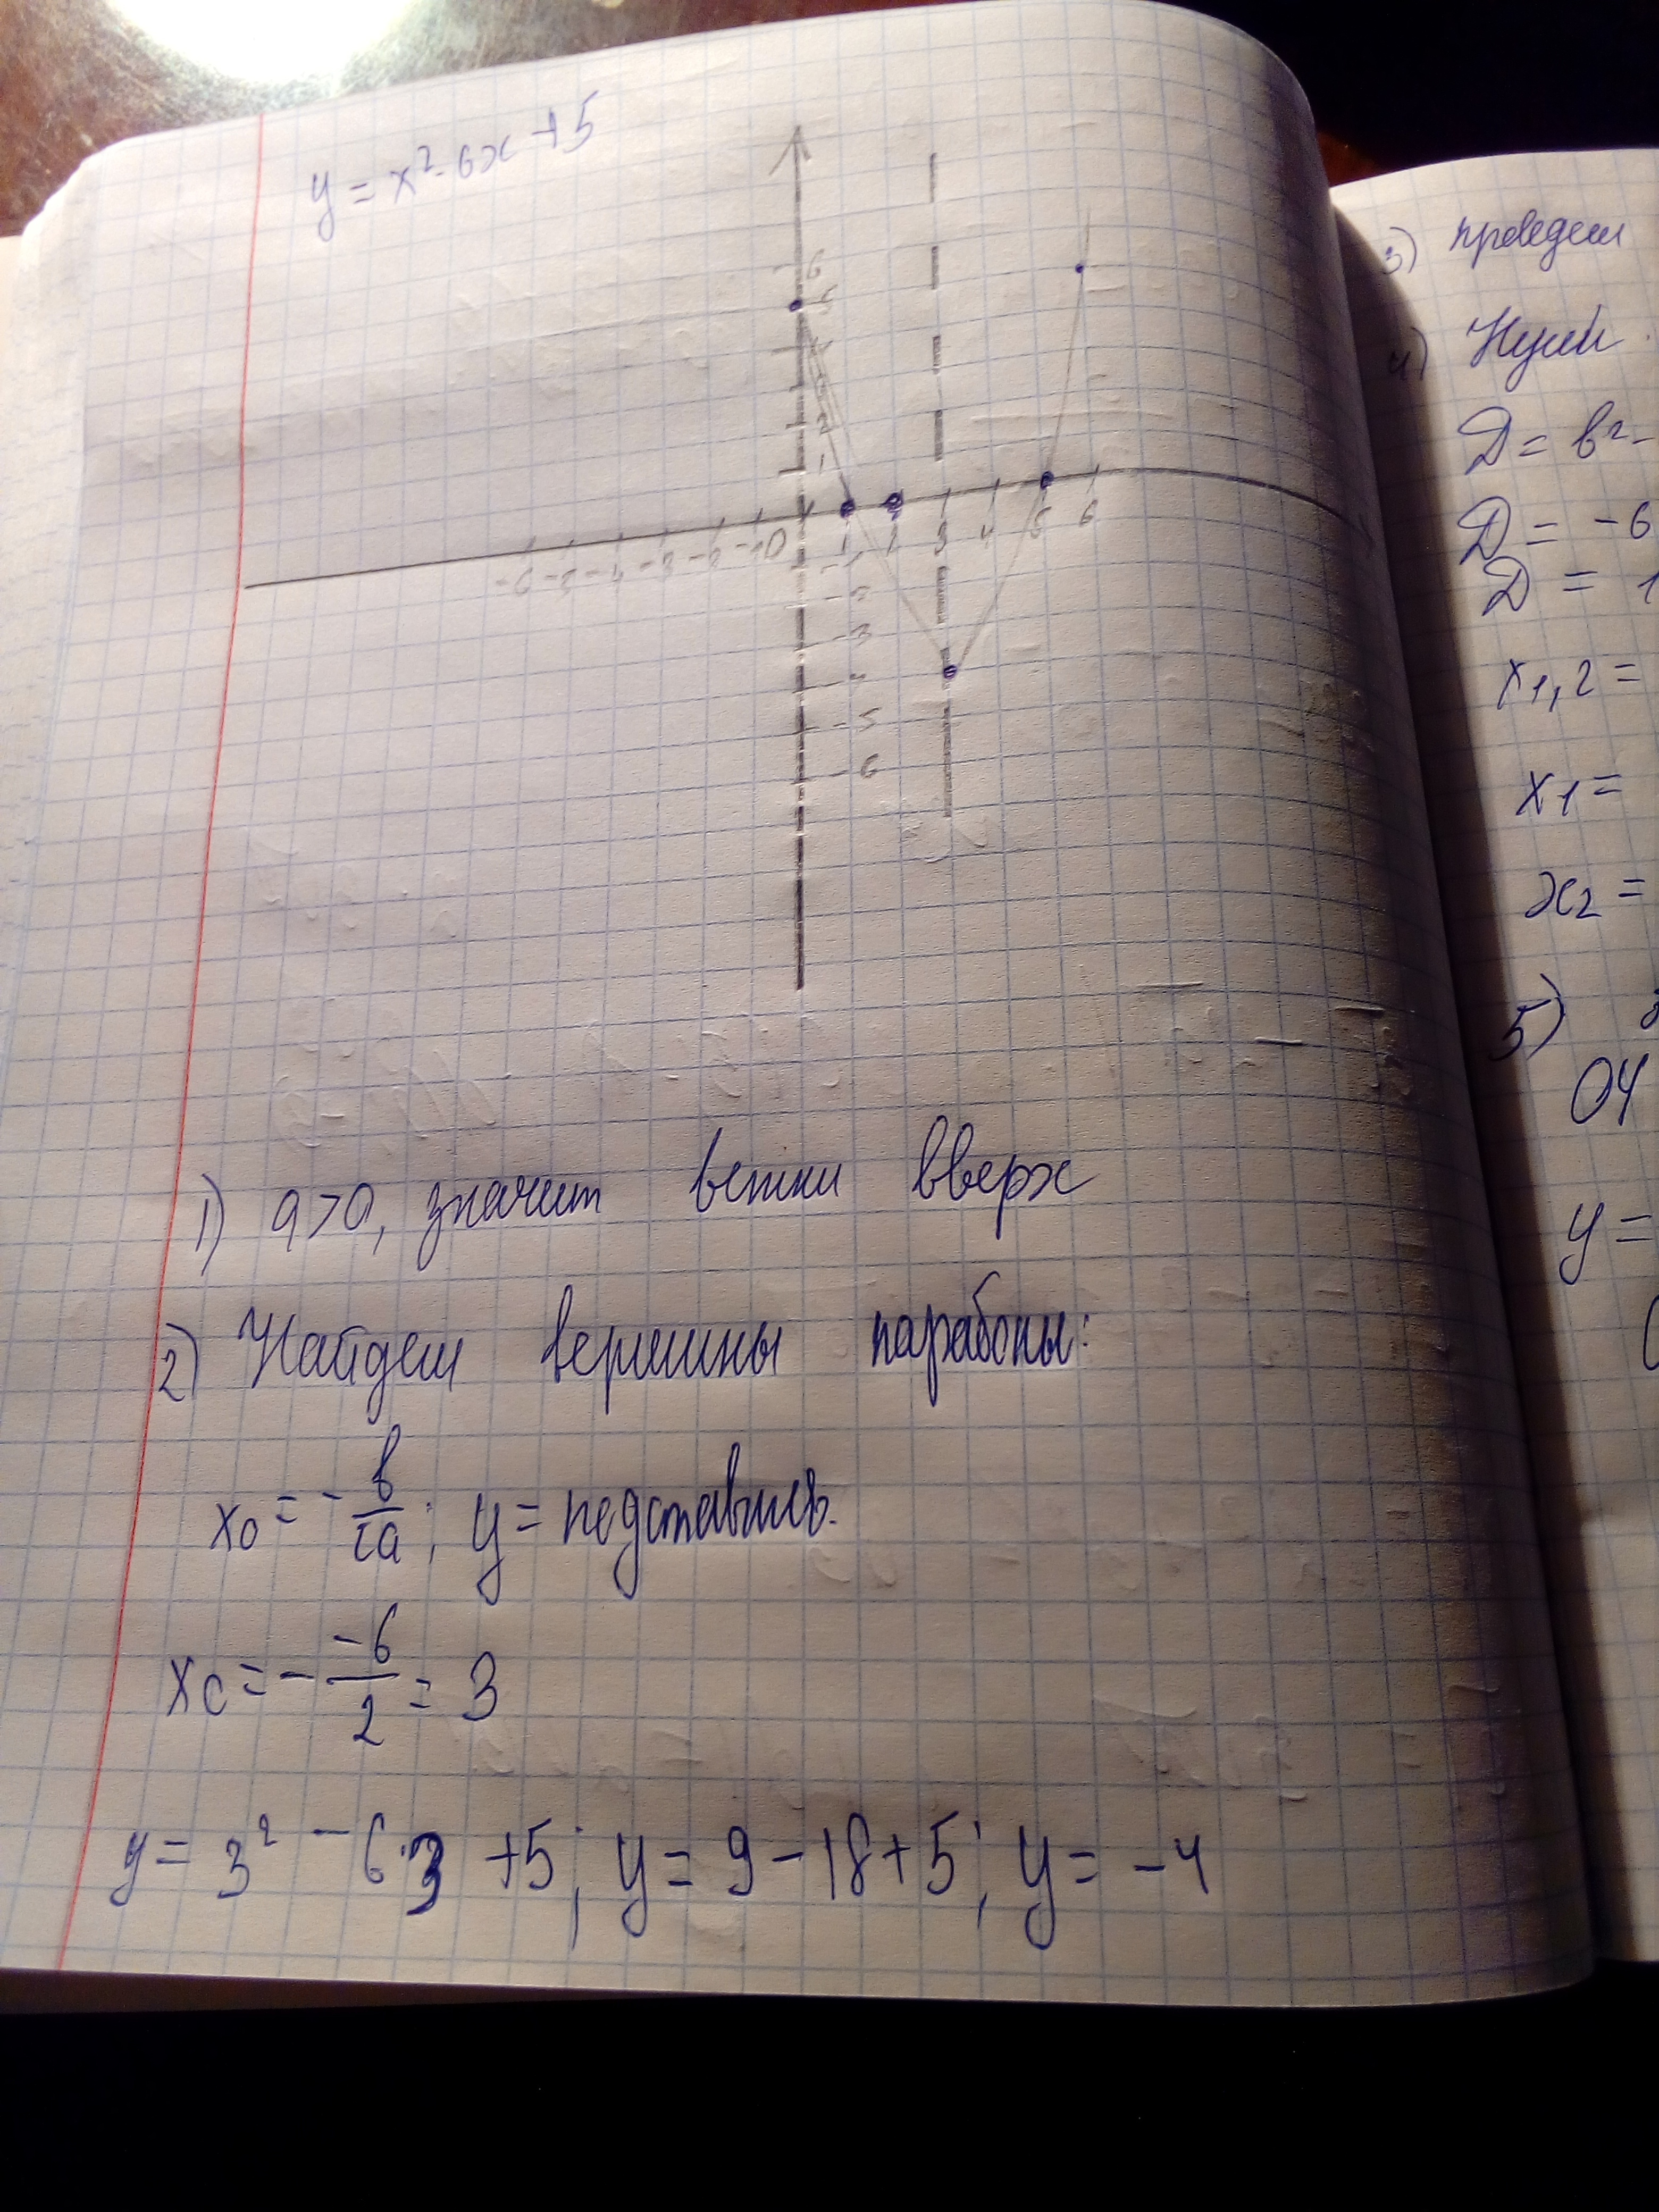 y = x² - 6x + 5
6
5
-1 0 1 2 3 4 5 6
-3
-5
-6
1) a>0, значит ветки вверх
2) Найдем вершины параболы:
x0 = - в/2a; y = подставить.
x0 = - -6/2 = 3
y = 3² - 6·3 + 5; y = 9 - 18 + 5; y = -4
3) проведем
4) Нули
D = в² -
D = -6
D = 1
x1,2 =
x1 =
x2 =
5)
ОУ
y =